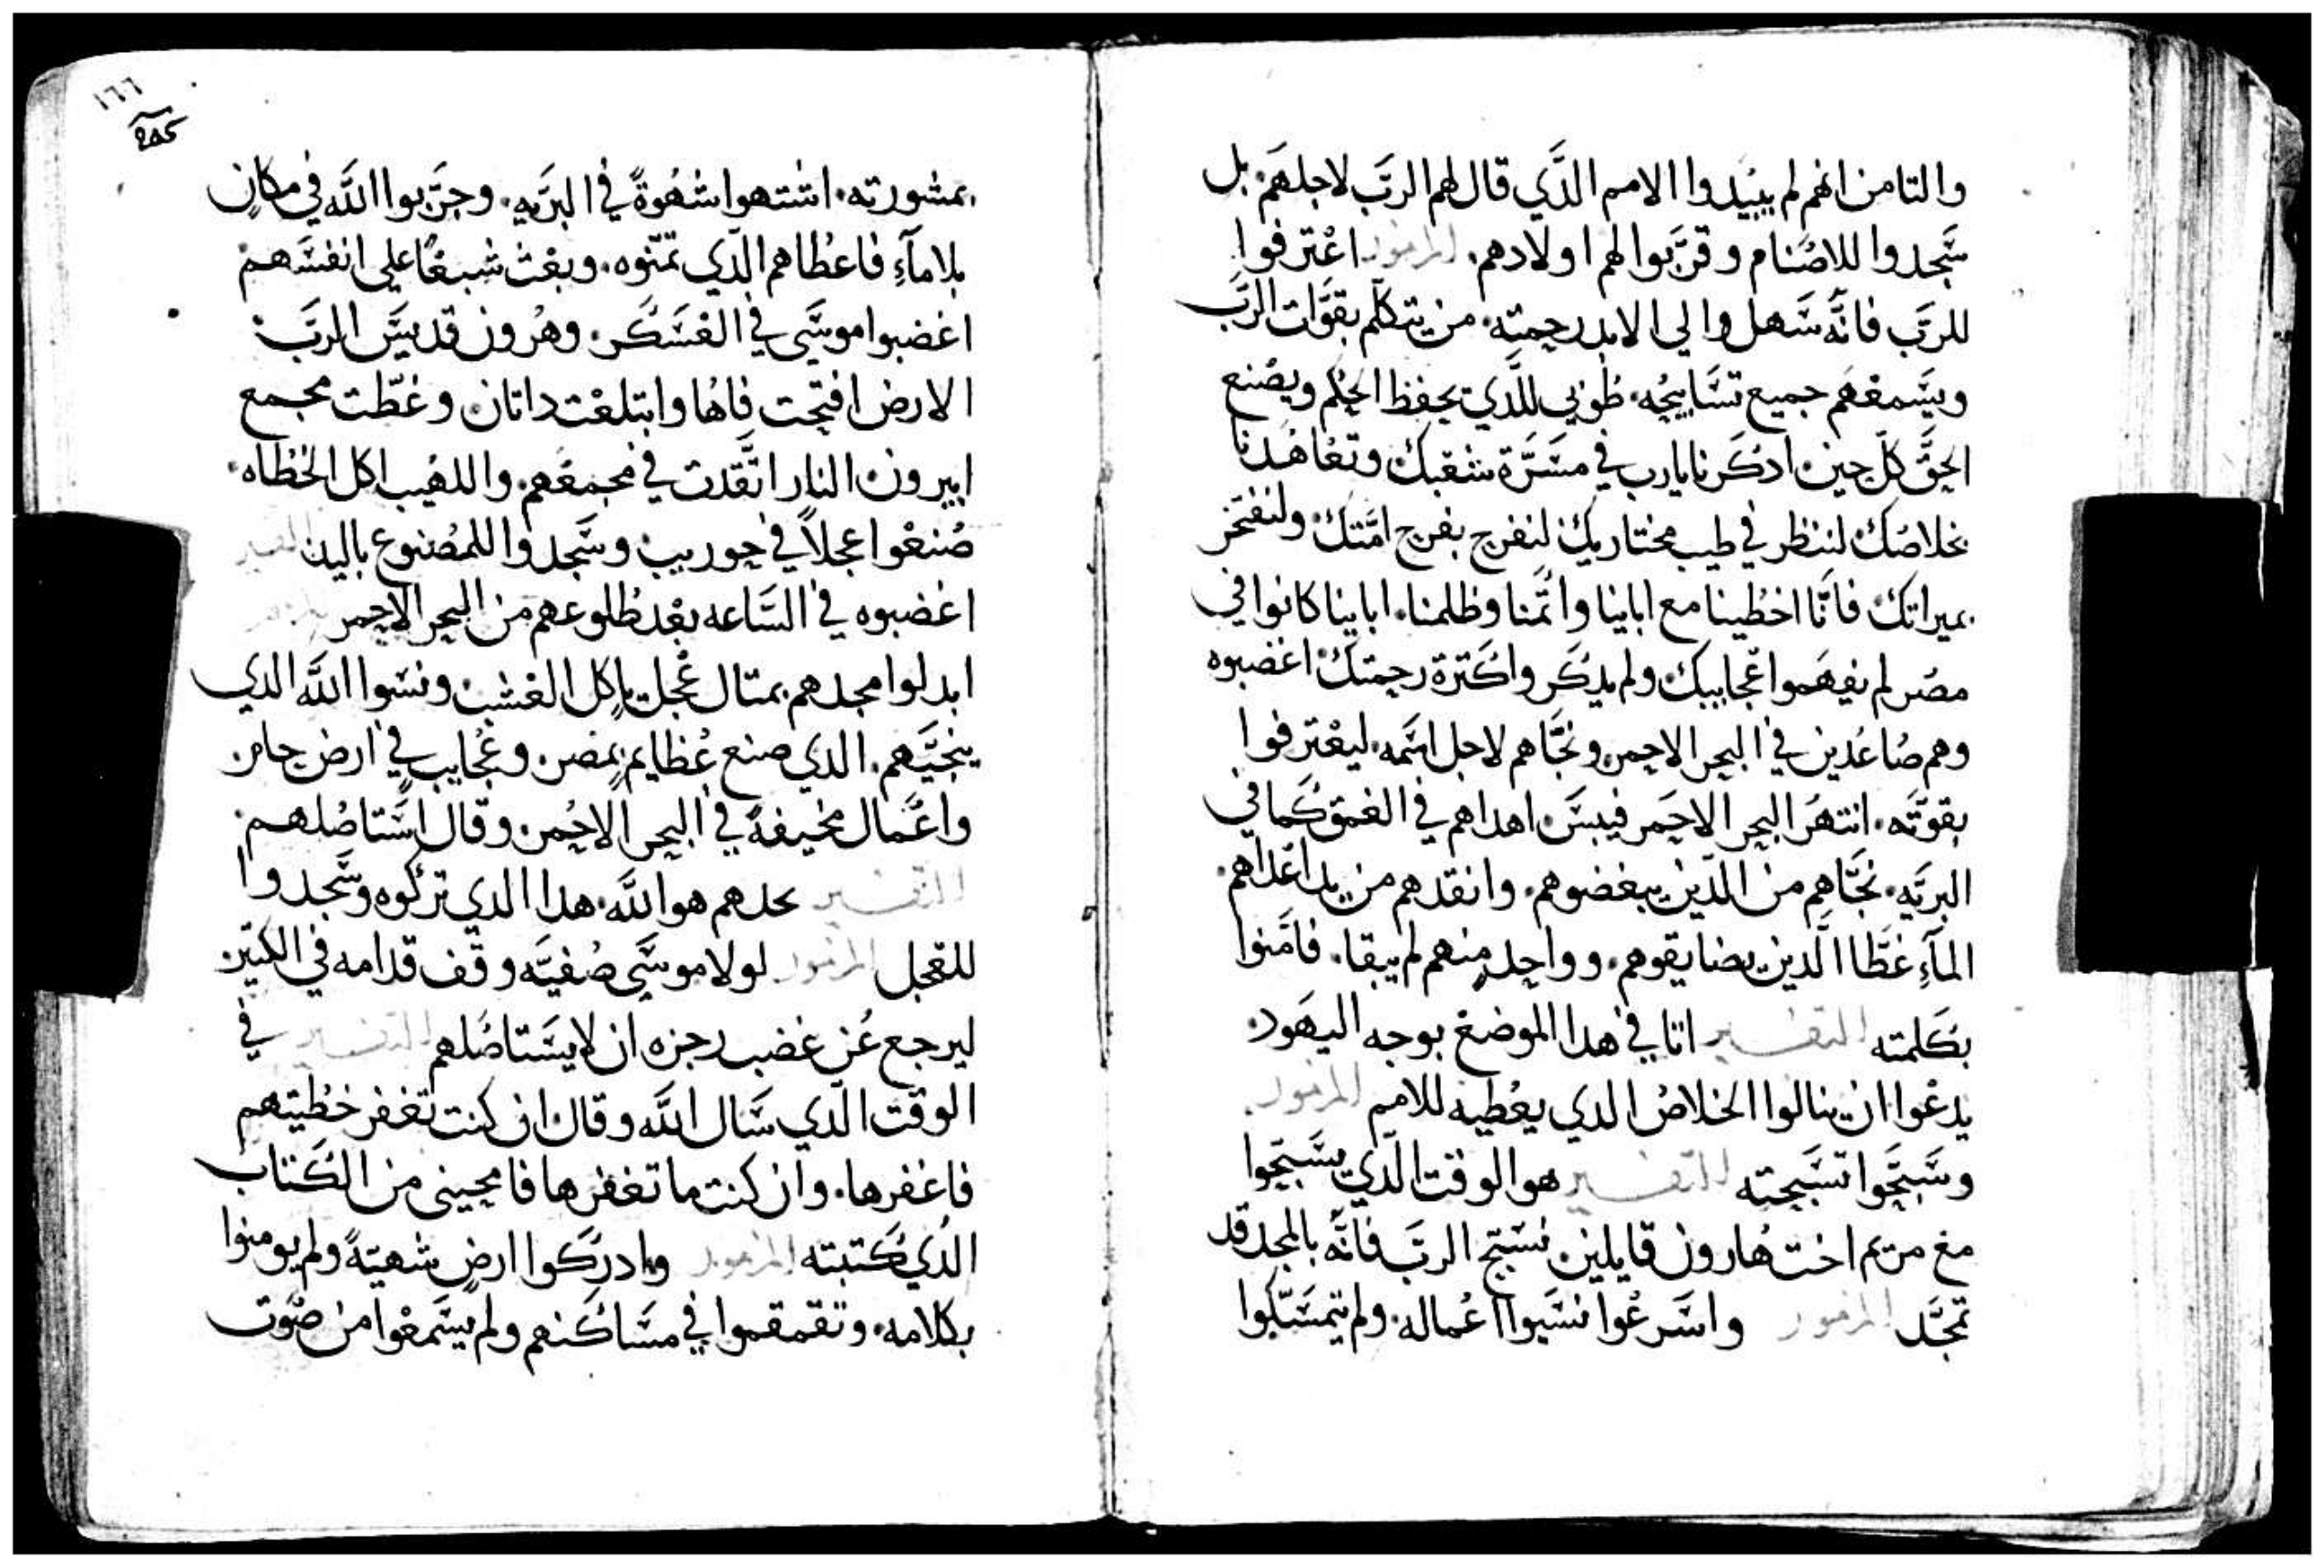 والتامن انهم لم يبيدوا الامم الذَّي قال لهم الربّ لاجلهَم. بل
سَّجدوا للاصنام وقرَّبوا لهم اولادهم. المزمور اعْترفوا
للربَّ فانَّه سَّهل والي الابد رحمته. من يتكلّم بقوَّات الربَّ
ويسَّمعَهم جميع تسَّابيحُه. طوبي للَّدي يحفظ الحُكم ويصْنع
الحقَّ كلّ حين ادكَرنا يارب في مسَّرَّة شعبك وتعاهُدنا
بخلاصَك لننظر في طيب مختاريك لنفرح بفرح امَّتك ولنفتخر
بميراتك فانَّا اخطينا مع ابابنا واتَّمنا وظلمنا. ابابنا كانوا في
مصْر لم يفهَموا عْجابيبك ولم يدكَروا كَترة رحمتك اغضبوه
وهم صَاعْدين في البحر الاحمر ونجَّاهم لاجل اسَّمه. ليعْترفوا
بقوَّته. انتهَر البحر الاحمَر فيبسَّ. اهداهم في العْمق كَما في
البريَّه. نجَّاهم من الدّين يبغضوهم. وانقدهم من يد اعْداهم.
المآءِ غطَّا الَّدين يضايقوهم. وواحدٍ منهم لم يبقا. فامَّنوا
بكَلمته التفسير اتا في هدا الموضعْ بوجه اليهَود
يدعْوا ان ينالوا الخلاصْ الدي يعْطيه للامم المزمور
وسَّبَّحوا تسَّبحته التفسير هو الوقت الَّدي يسَّبَّحوا
معْ مريم اخت هارون قايلين نسَّبّح الربَّ فانَّه بالمجد قد
تمجَّد المزمور واسَّرعْوا نسَّيوا اعْماله. ولم يتمسَّكوا
١٦٦
بمشورته. اشتهوا شهْوةً في البرَيه. وجرَّبوا اللَّه في مكانٍ
بلا مآءِ فاعْطاهم الَّدي تمنّوه. وبعْث شبعْاً علي انفسَّهم
اغضبوا موسَّي في العْسَّكَر. وهْرون قديسَّ الربَّ.
الارض افتحت فاها وابتلعْت داتان. وغطّت مجمع
ابيرون النار اتَّقدت في مجمعْهم. واللهيب اكل الخطاه.
صْنعْوا عجلاً في حوريب وسَّجدوا للمصْنوع باليد التفسير
اغضبوه في السَّاعه بعْد طلوعهم من البحر الاحمر المزمور
ابدلوا مجدهم بمتال عْجل ياكل العْشب ونسَّوا اللَّه الدي
ينجيَّهم. الدي صنع عْظايم بمصر. وعْجايب في ارض حام
واعْمال مخيفةً في البحر الاحْمر. وقال اسَّتاصْلهم.
التفسير يحدهم هو اللَّه. هدا الدي تركوه وسَّجدوا
للعْجل المزمور لولا موسَّي صْفيَّه وقف قدامه في الكتير
ليرجع عْن غضب رجزه ان لا يسَّتاصْلهم التفسير في
الوقت الَّدي سَّال اللَّه وقال ان كنت تغفر خطيتهم
فاغفرها. وان كنت ما تغفرها فامحيني من الكَتاب
الَّدي كَتبته المزمور وادركَوا ارض شهيَّةً ولم يومنوا
بكلامه. وتقمقموا في مسَّاكَنهم ولم يسَّمعْوا من صْوت